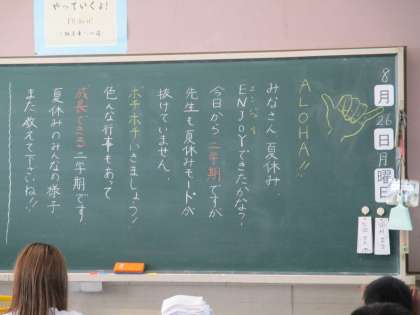 やっていくよ!
8月26日月曜日
ALOHA!!
みなさん 夏休み、
ENJOYできたかな?
エンジョイ
今日から二学期ですが
先生も夏休みモードが
抜けていません。
ボチボチいきましょう!
色んな行事もあって
成長できる二学期です
夏休みのみんなの様子
また教えて下さいね!!